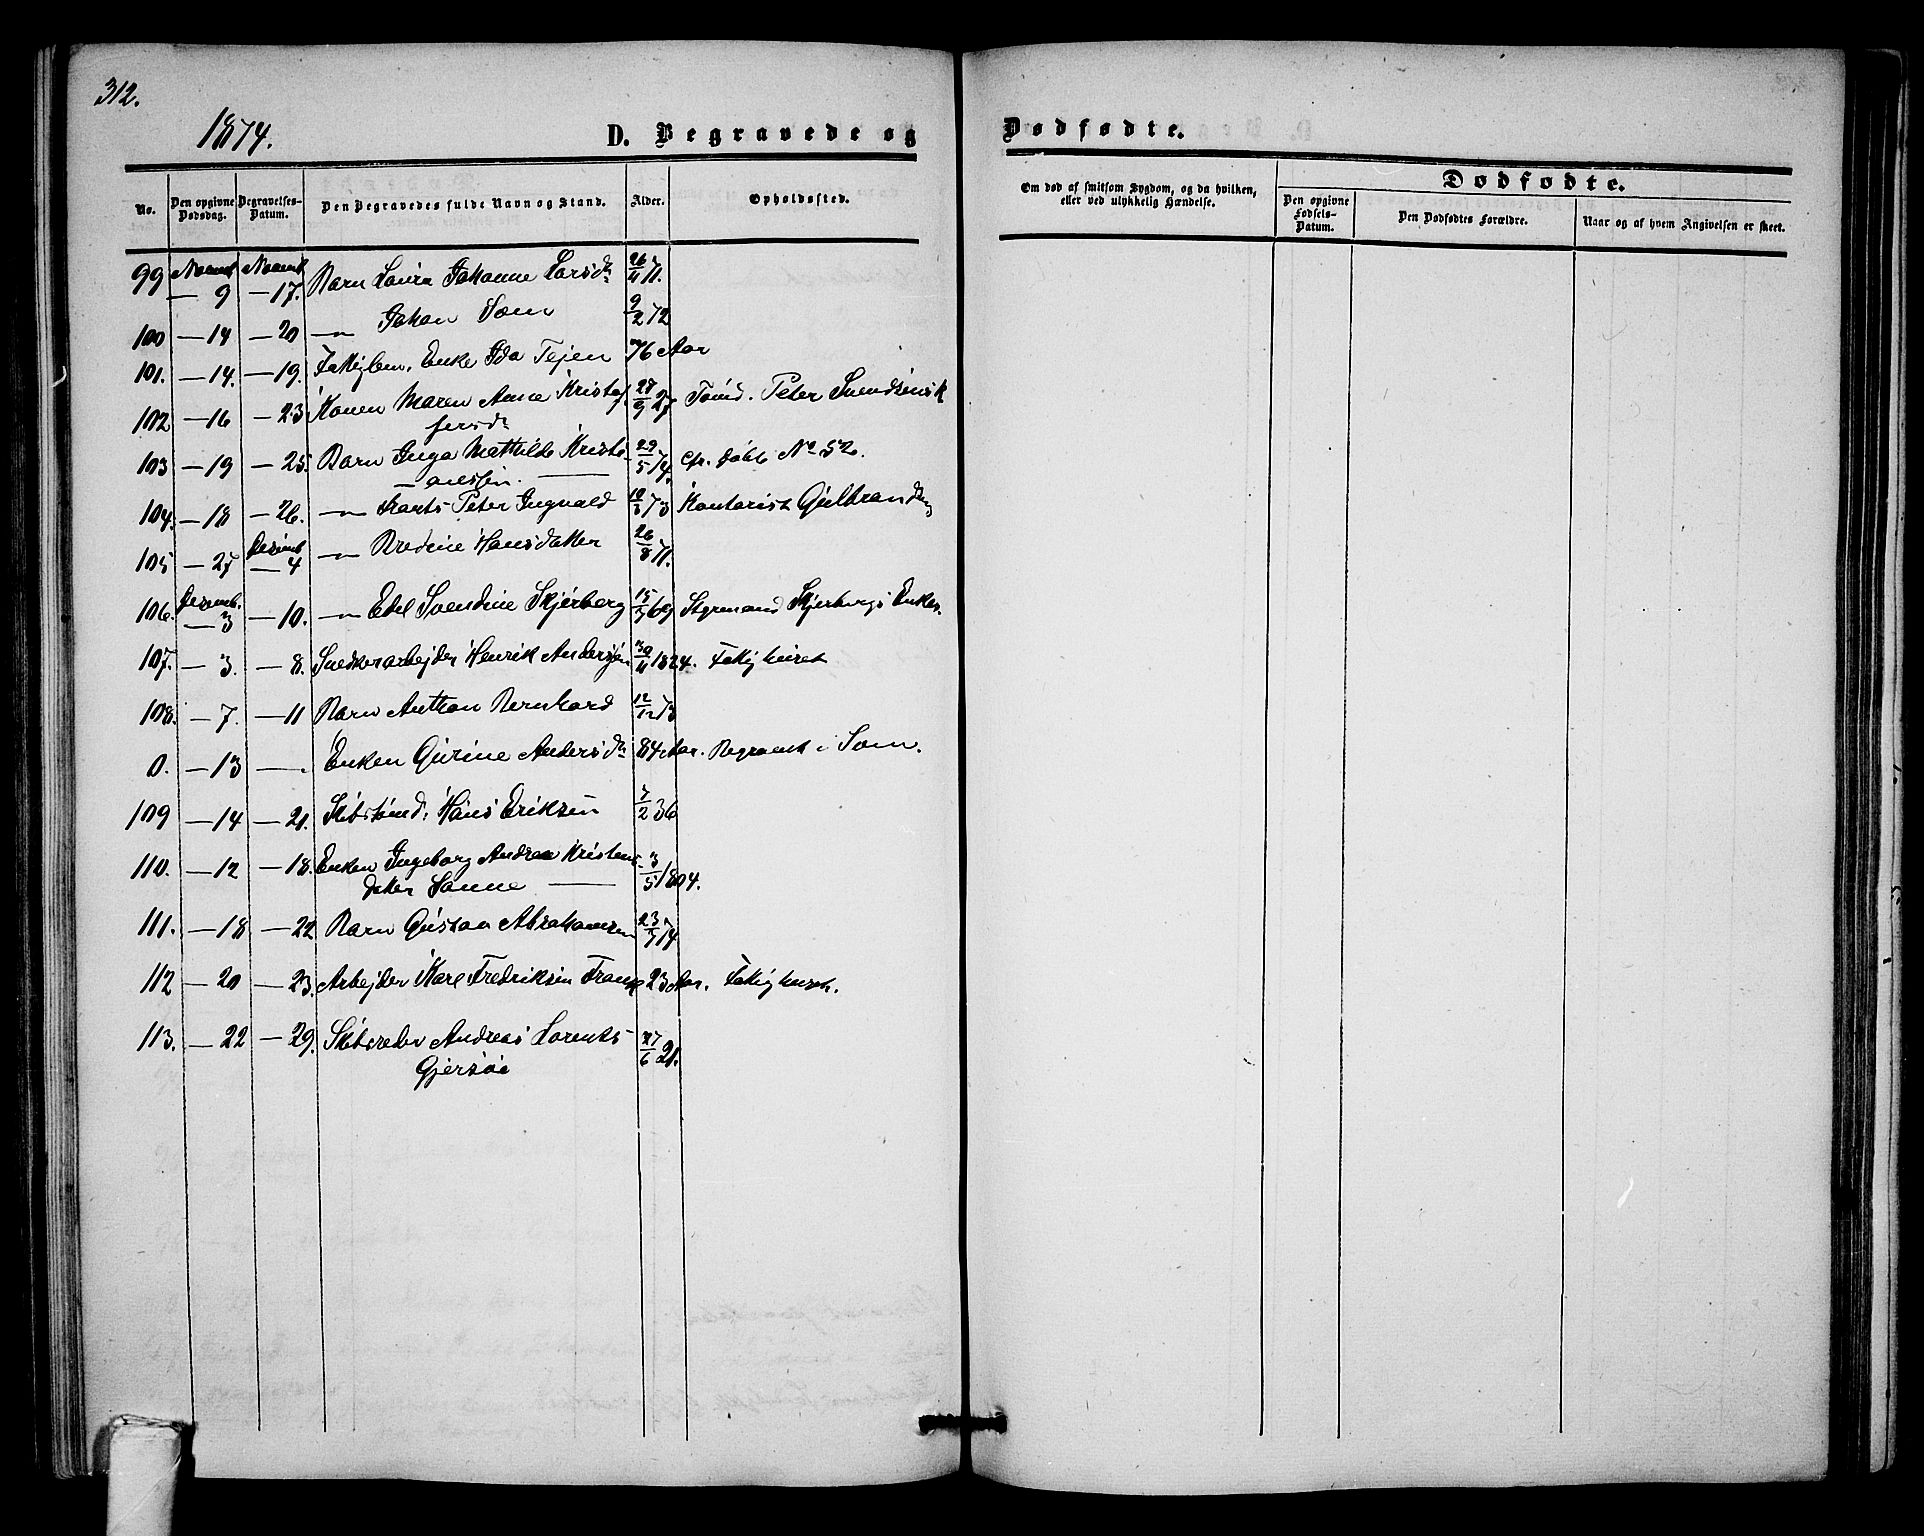 312.
1874.
D. Begravede og
Dødfødte.
No.
Den opgivne Dødsdag.
Begravelses-Datum.
Den Begravedes fulde Navn og Stand.
Alder.
Opholdssted.
Om død af smitsom Sygdom, og da hvilken, eller ved ulykkelig Hændelse.
Dødfødte.
Den opgivne Fødsels-Datum.
Den Dødfødtes Forældre.
Naar og af hvem Angivelsen er skeet.
99 Novemb — 9 Novemb — 17. Barn Laura Johanne Larsdr 26/11 71.
100 — 14 — 20 — " — Johan Som 9/2 72
101. — 14. — 19. Fattiglem. Enke Ida Tejen 76 Aar
102 — 16 — 23 Konen Maren Anne Kristof 28/9 27 Tømd. Peter Svendsens k
fersdr
103 — 19 — 25. Barn Inga Mathilde Kristi 29/5 74. cfr. døbte No 52.
— anssen. —
104. — 18 — 26. — " — Frants Peter Ingvald 10/3 73 Kontorist Gulbrandsen
105 — 27 Desemb — 4 — " — Bredine Hansdatter 26/8 71.
106. Desemb. — 3 — 10. — " — Edel Svendine Skjerberg 15/5 69 Styrmand Skjerbergs Enke.
107. — 3. — 8. Snedkerarbejder Henrik Anderssen 30/11 1824. Fattighuset
108. — 7. — 11 Barn Anthon Bernhard 12/12 73
0. — 13 — . Enken Gurine Andersdr 84 Aar. Begravet i Sem.
109 — 14 — 21. Skibstømd. Hans Eriksen 7/2 36
110. — 12 — 18. Enken Ingeborg Andrea Kristens 3/5 1804.
datter Sanne —
111. — 18 — 22 Barn Gustav Abrahamsen 23/7 74
112 — 20 — 23. Arbejder Karl Fredriksen Frank 23 Aar. Fattighuset.
113. — 22 — 29. Skibsreder Andreas Lorents 27/6 21.
Gjersøe